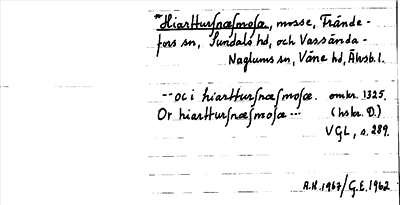 *Hiartturſnæſmoſæ, mosse, Trände-
fors sn, Sundals hd, och Vassända-
Naglums sn, Väne hd, Älvsb. l.
-- oc i hiartturſnæſmoſæ. omkr. 1325.
Or hiartturſnæſmoſæ --- (hskr. D.)
VGL, s. 289.
A.H. 1967/G.E. 1962